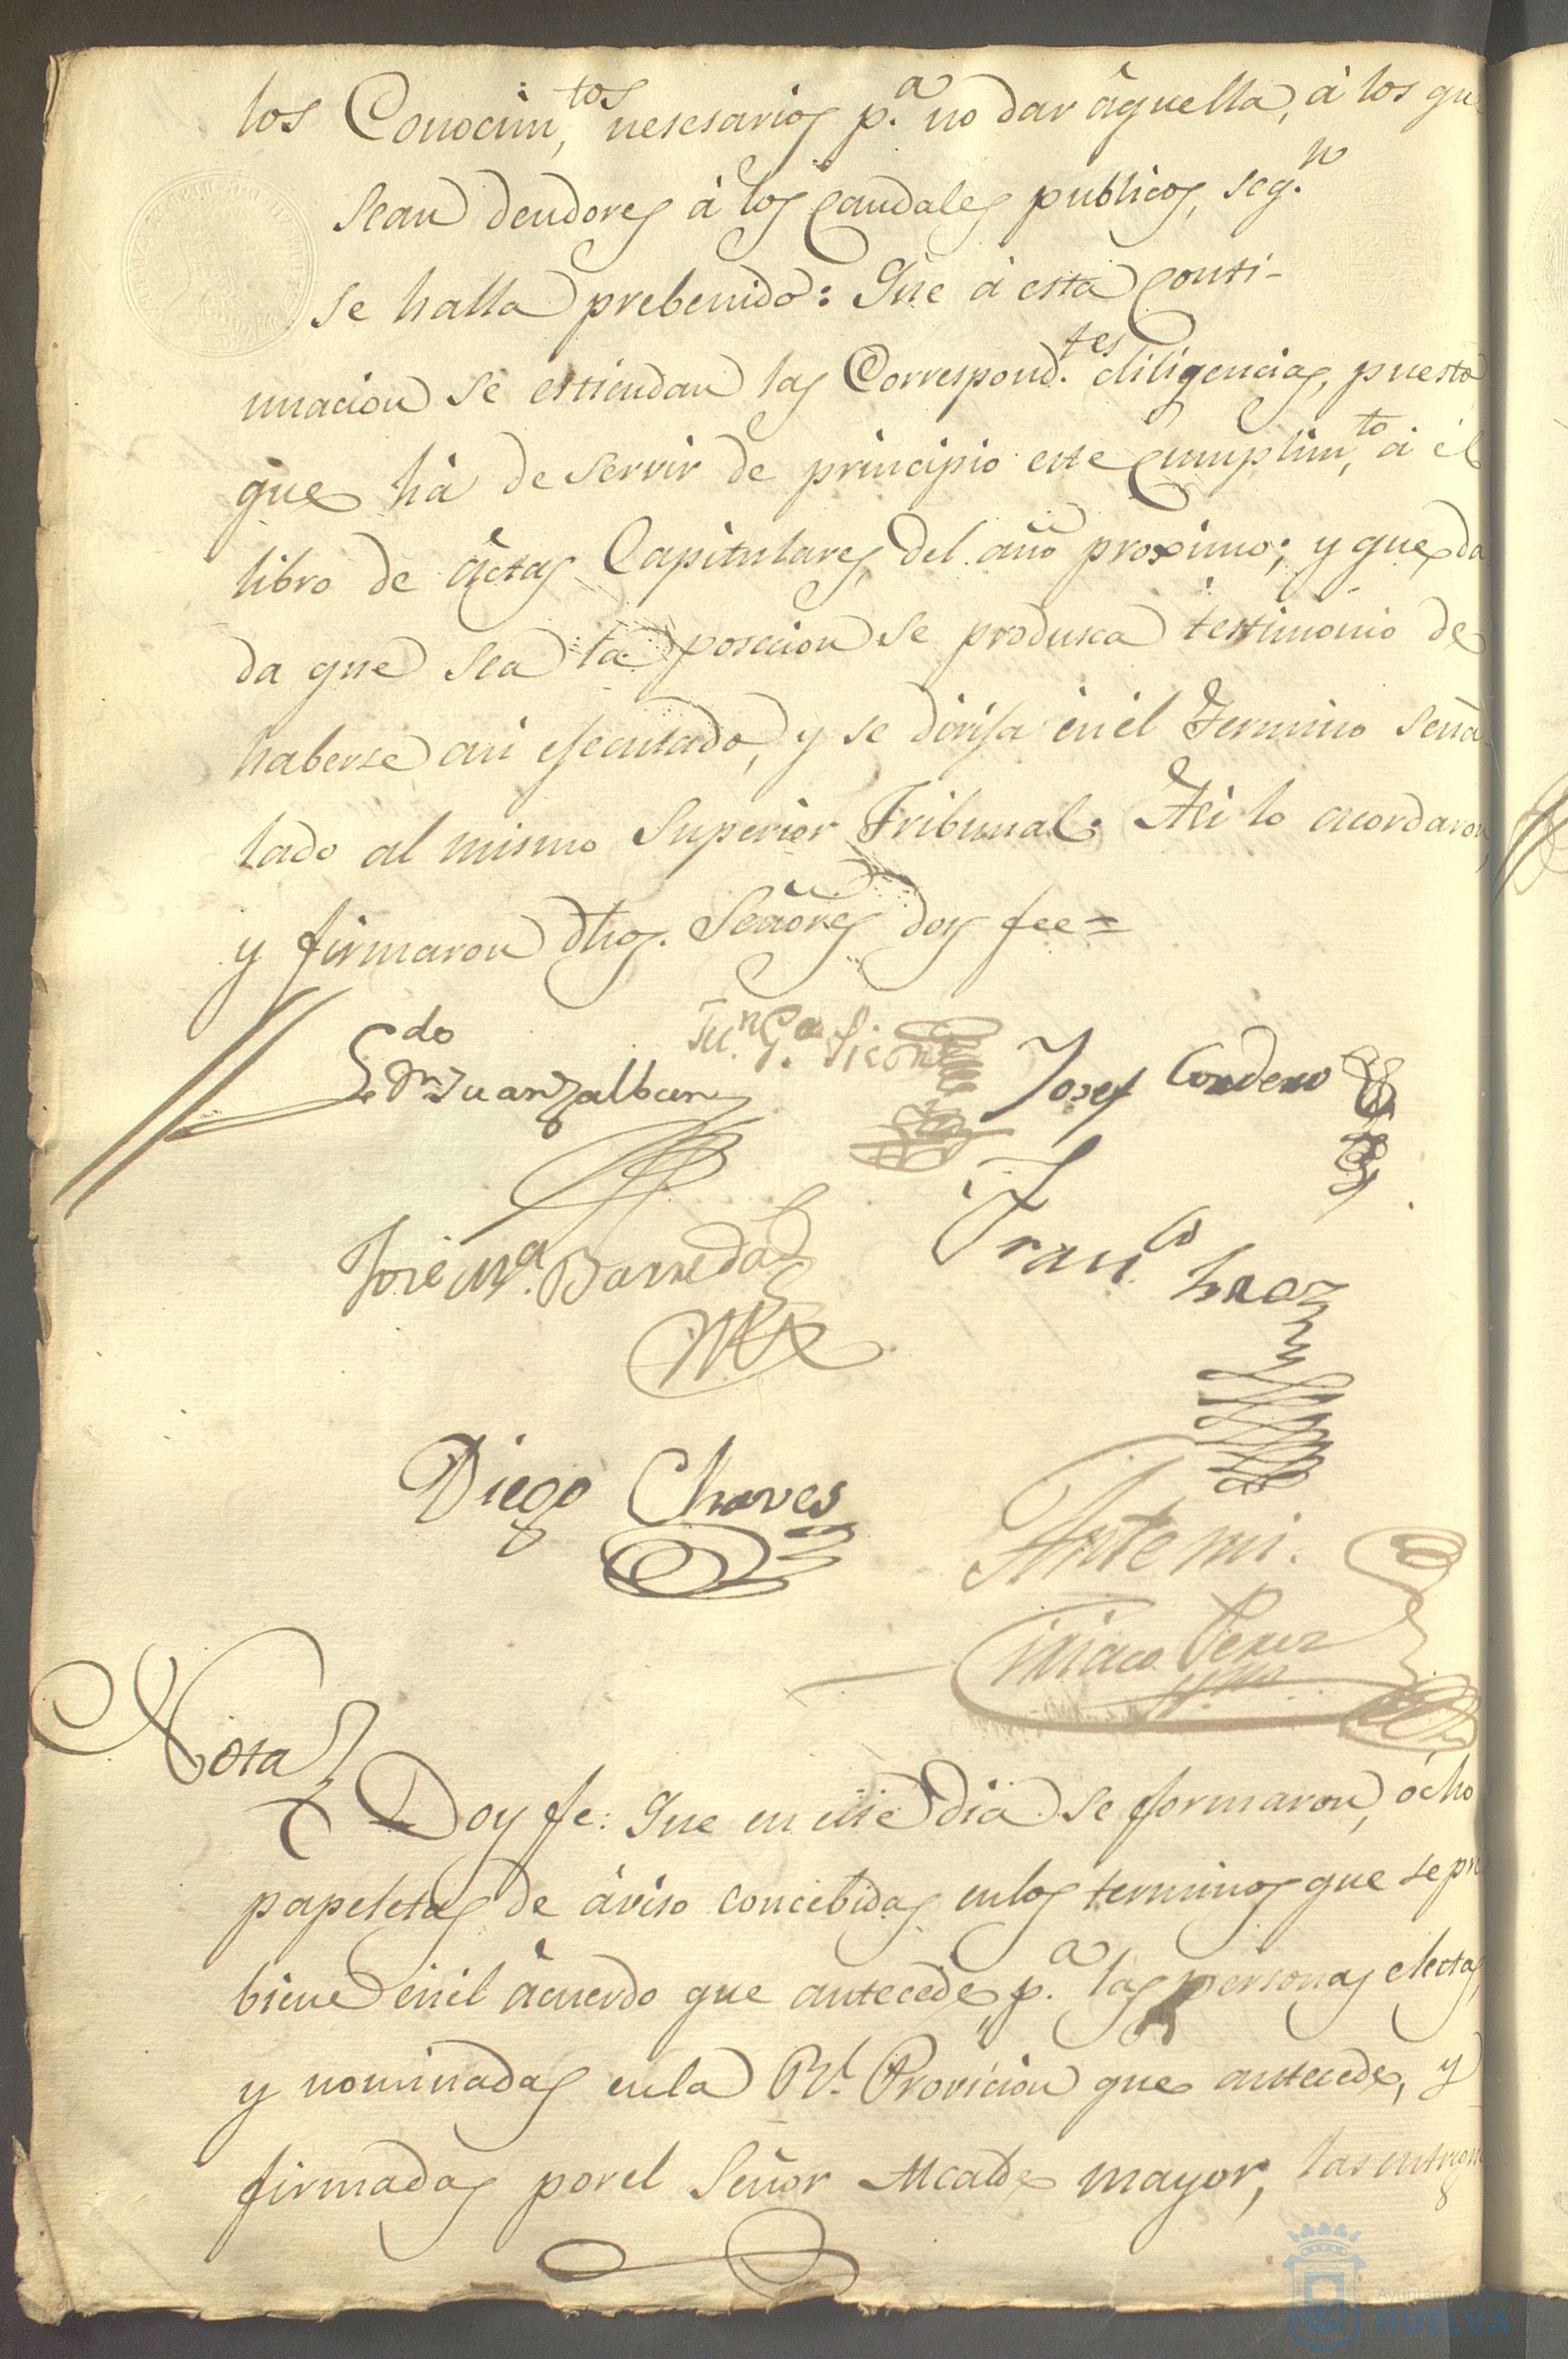 los Conocim,tos nesesarios p.a no dar âquella, à los que
sean deudores à los Caudales publicos, seg.n
se halla prebenido: Que à esta Conti-
nuacion se estiendan las Correspond.tes diligencias, puesto
que hà de servir de principio este Cumplim,to à èl
libro de âctas Capitulares, del año proximo; y que da
da que sea la posecion se produsca testimonio de
haberse asi ejecutado, y se dirija en èl Termino seña-
lado al mismo Superior Tribunal. Asi lo acordaron,
y firmaron dhos. Señores doy fee =
Ldo Dn Juan Zalban
Ju.n G.a
Josef Cordero
Jose M.a Barreda
Fran.co
Diego Chaves
Ante mi.
Ciriaco Perez
Nota
Doy fe: Que en este dia se formaron, ocho
papeletas de àviso concebidas en los terminos que se pre
biene en el âcuerdo que antecede p.a las personas electas,
y nominadas en la Rl. Provicion que antecede, y
firmadas por el Señor Alcalde mayor, las entregué
Ayuntamiento
HUELVA